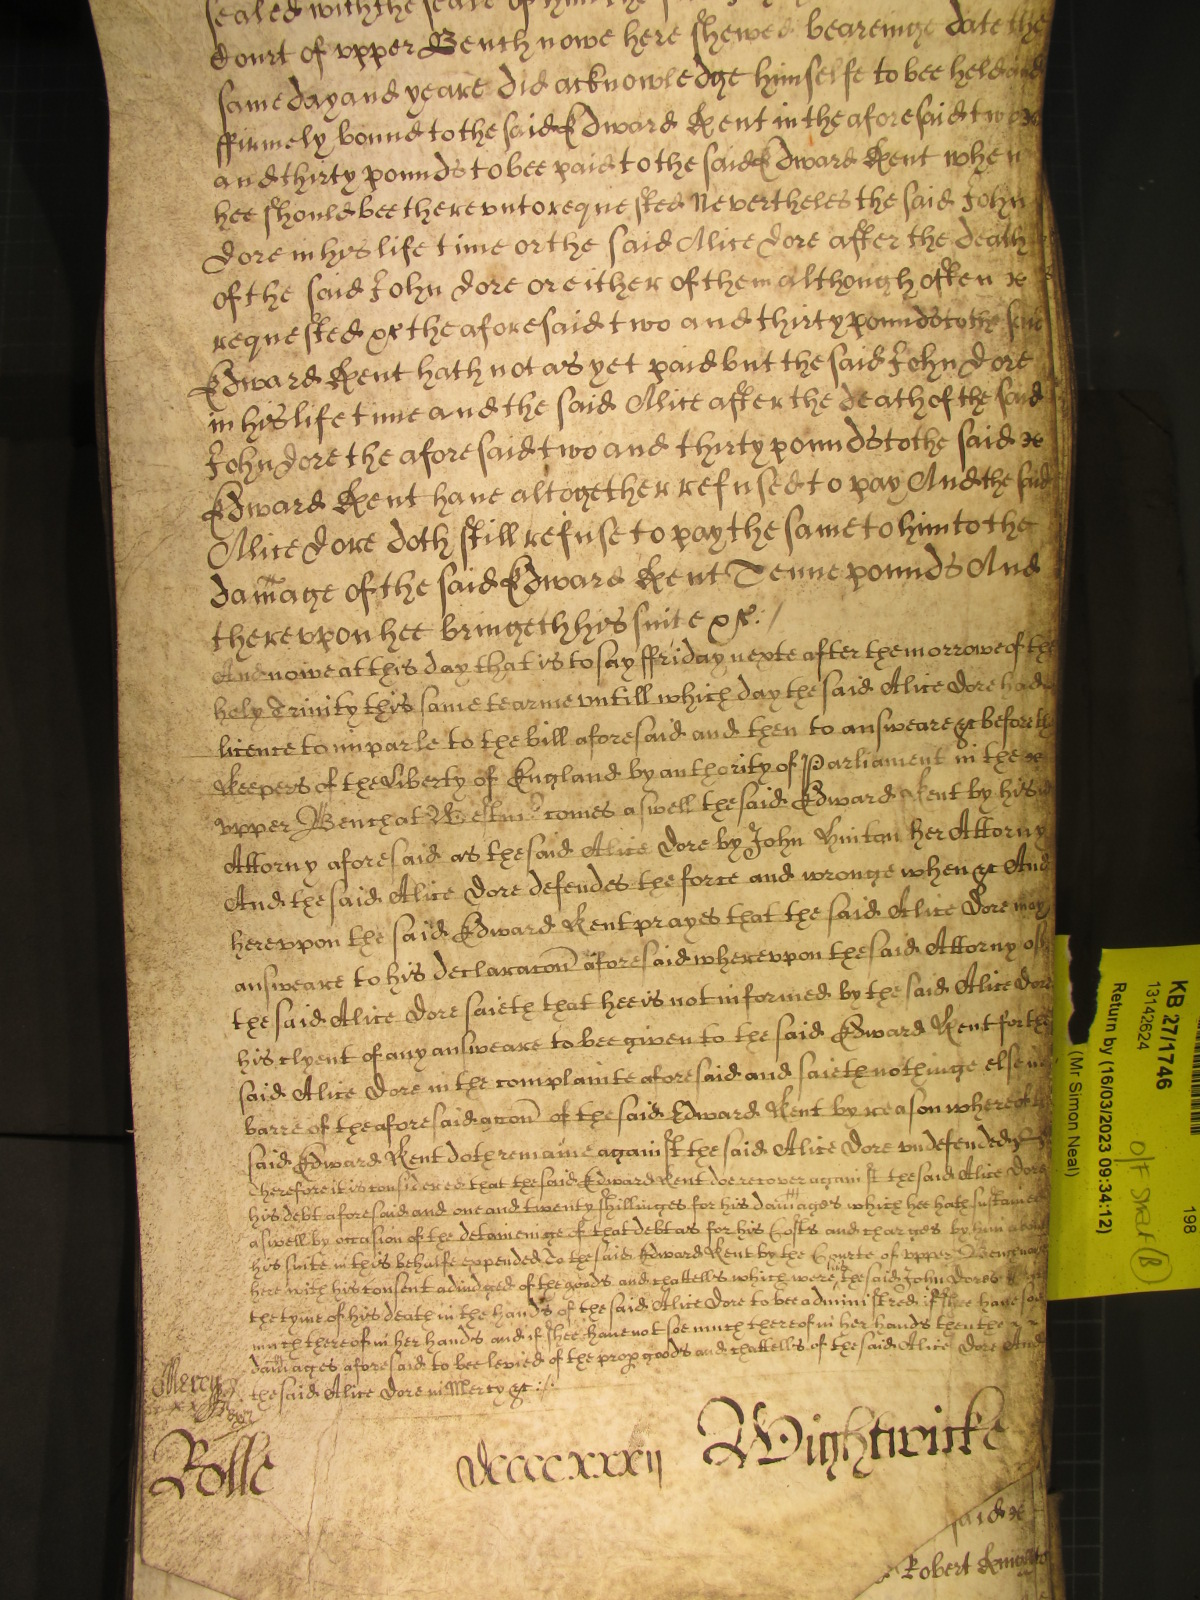 sealed with the seale of him the
Court of upper Bench nowe here shewed beareinge date the
same day and yeare did acknowledge himselfe to bee held and
ffirmely bound to the said Edward Kent in the aforesaid two &
and thirty pounds to bee paid to the said Edward Kent when
hee should bee thereunto requested Nevertheles the said John
Dore in his life time or the said Alice Dore after the death
of the said John Dore or either of them although often &
requested &c the aforesaid two and thirty pounds to the said
Edward Kent hath not as yet paid but the said John Dore
in his life time and the said Alice after the death of the said
John Dore the aforesaid two and thirty pounds to the said &
Edward Kent have altogether refused to pay And the said
Alice Dore doth still refuse to pay the same to him to the
damage of the said Edward Kent Tenne pounds And
thereupon hee bringeth his suite &c:/
And nowe at this day that is to say ffriday nexte after the morrowe of the
holy Trinity this same tearme untill which day the said Alice Dore had
licence to imparle to the bill aforesaid and then to answeare &c before the
Keepers of the Liberty of England by authority of Parliament in the &
upper Bench at Westmr comes aswell the said Edward Kent by his
Attorny aforesaid as the said Alice Dore by John Hinton her Attorny
And the said Alice Dore defendes the force and wronge when &c And
hereuppon the said Edward Kent prayes that the said Alice Dore may
answeare to his declaracon aforesaid whereuppon the said Attorny of
the said Alice Dore saieth that hee is not informed by the said Alice Dore
his clyent of any answeare to bee given to the said Edward Kent for the
said Alice Dore in the complainte aforesaid and saieth nothinge else in
barre of the aforesaid accon of the said Edward Kent by reason whereof the
said Edward Kent doth remaine against the said Alice Dore undefended &c
Therefore it is considered that the said Edward Kent doe recover against the said Alice Dore
his debt aforesaid and one and twenty shillinges for his damages which hee hath sustained
aswell by occasion of the deteineinge of that debt as for his Costs and charges by him about
his suite in this behalfe expended to the said Edward Kent by the Courte of upper Bench nowe
here with his consent adiudged of the goods and chattells which were the said John Dores
the tyme of his death in the hands of the said Alice Dore to bee administred if shee have soe
much thereof in her hands and if shee have not soe much thereof in her hands then the
damages aforesaid to bee levied of the proper goods and chattells of the said Alice Dore And
the said Alice Dore in Mercy &c:/
Mercy
Rolle DCCCCxxxij Wightwicke
said &
Robert
KB 27/1746
13142624
Return by (16/03/2023 09:34:12)
(Mr Simon Neal)
198
O/F Staf (B)